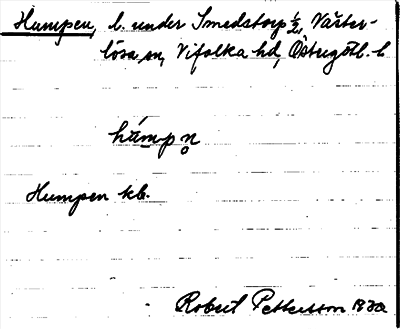 Humpen, l. under Smedstorp ½, Väster-
lösa sn, Vifolka hd, Östergötl. l
hámp n̥
Humpen kb.
Robert Pettersson